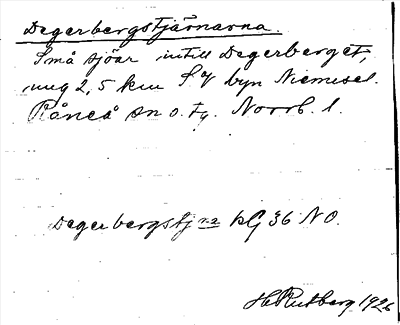 Degerbergstjärnarna.
Små sjöar intill Degerberget,
ung 2,5 km S of byn Niemisel.
Råneå sn o. tg. Norrb. l.
Degerbergstj:na kG 36 NO.
H Rutberg 1926